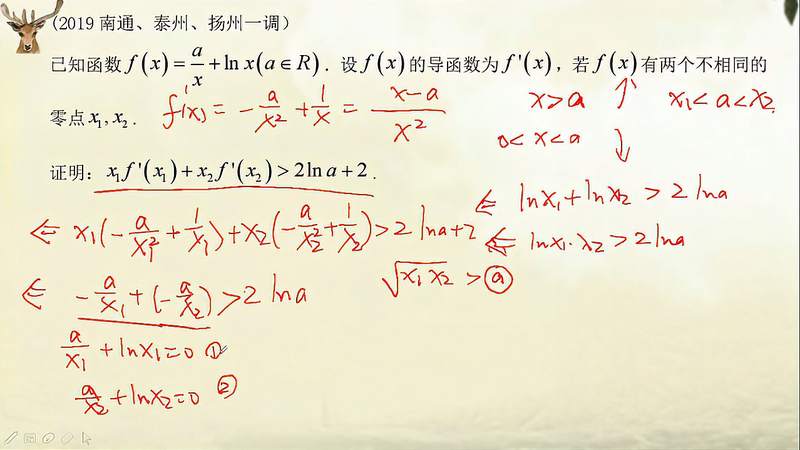 (2019 南通、泰州、扬州一调)
已知函数 f(x) = a/x + ln x (a∈R). 设 f(x) 的导函数为 f'(x), 若 f(x) 有两个不相同的
零点 x₁, x₂.
f'(x) = -a/x² + 1/x = (x-a)/x²
x>a ↑ x₁<a<x₂
0<x<a ↓
证明: x₁f'(x₁) + x₂f'(x₂) > 2ln a + 2.
⇐ lnx₁+lnx₂ > 2lna
⇐ x₁(-a/x₁² + 1/x₁) + x₂(-a/x₂² + 1/x₂) > 2lna+2
⇐ lnx₁·x₂ > 2lna
√x₁x₂ > a
⇐ -a/x₁ + (-a/x₂) > 2lna
a/x₁ + lnx₁=0 ①
a/x₂ + lnx₂=0 ②